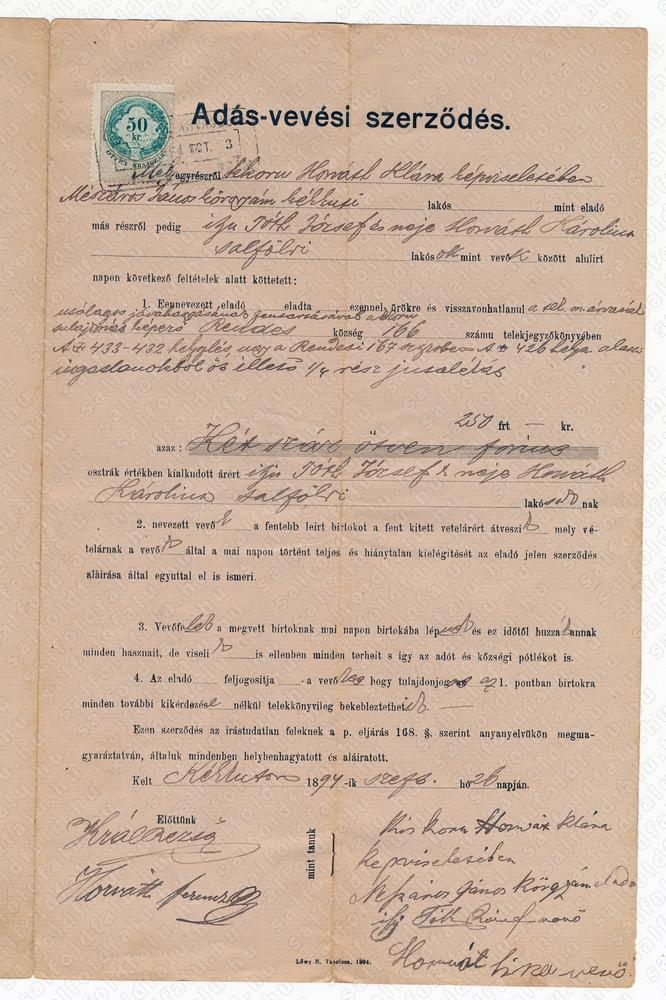 50
kr.
Adás-vevési szerződés.
Mely egyrészről kkoru Horváth Klára képviseletében
Mészáros János közgyám kékkuti lakós mint eladó
más részről pedig ifju Tóth József és neje Horváth Károlina
salföldi lakósok mint vevők között alulirt
napon következő feltételek alatt köttetett:
1. Fennevezett eladó eladta ezennel örökre és visszavonhatlanul a
utólagos jóváhagyásának fenntartásával
Rendes község 166 számu telekjegyzőkönyvében
A I 433-432 a Rendesi 167 A I 426
ingatlanokból őt illető 1/4 rész jutalékát
250 frt — kr.
azaz: Két száz ötven forint
osztrák értékben kialkudott árért ifju Tóth József & neje Horváth
Károlina Salföldi lakós nak
2. nevezett vevő a fentebb leirt birtokot a fent kitett vetelárért átveszi mely vé-
telárnak a vevő által a mai napon történt teljes és hiánytalan kielégítését az eladó jelen szerződés
aláirása által egyuttal el is ismeri.
3. Vevőfelek a megvett birtoknak mai napon birtokába lépnek és ez időtől huzzák annak
minden hasznait, de viseli is ellenben minden terheit s igy az adót és községi pótlékot is.
4. Az eladó feljogosítja a vevő hogy tulajdonjog az 1. pontban birtokra
minden további kikérdezése nélkül telekkönyvileg bekebleztetheti
Ezen szerződés az irástudatlan feleknek a p. eljárás 168. §. szerint anyanyelvükön megma-
gyaráztatván, általuk mindenben helybenhagyatott és aláiratott.
Kelt Kékkuton 1894-ik szept. hó 26 napján.
Előttünk
mint tanuk
Král Rezső
Horváth Ferencz
Kis koru Horvát Klára
képviseletében
Mészáros János Közgyám eladó
ifj Tóth József vevő
Horvát vevő
Lőwy B. Tapolcza, 1894.